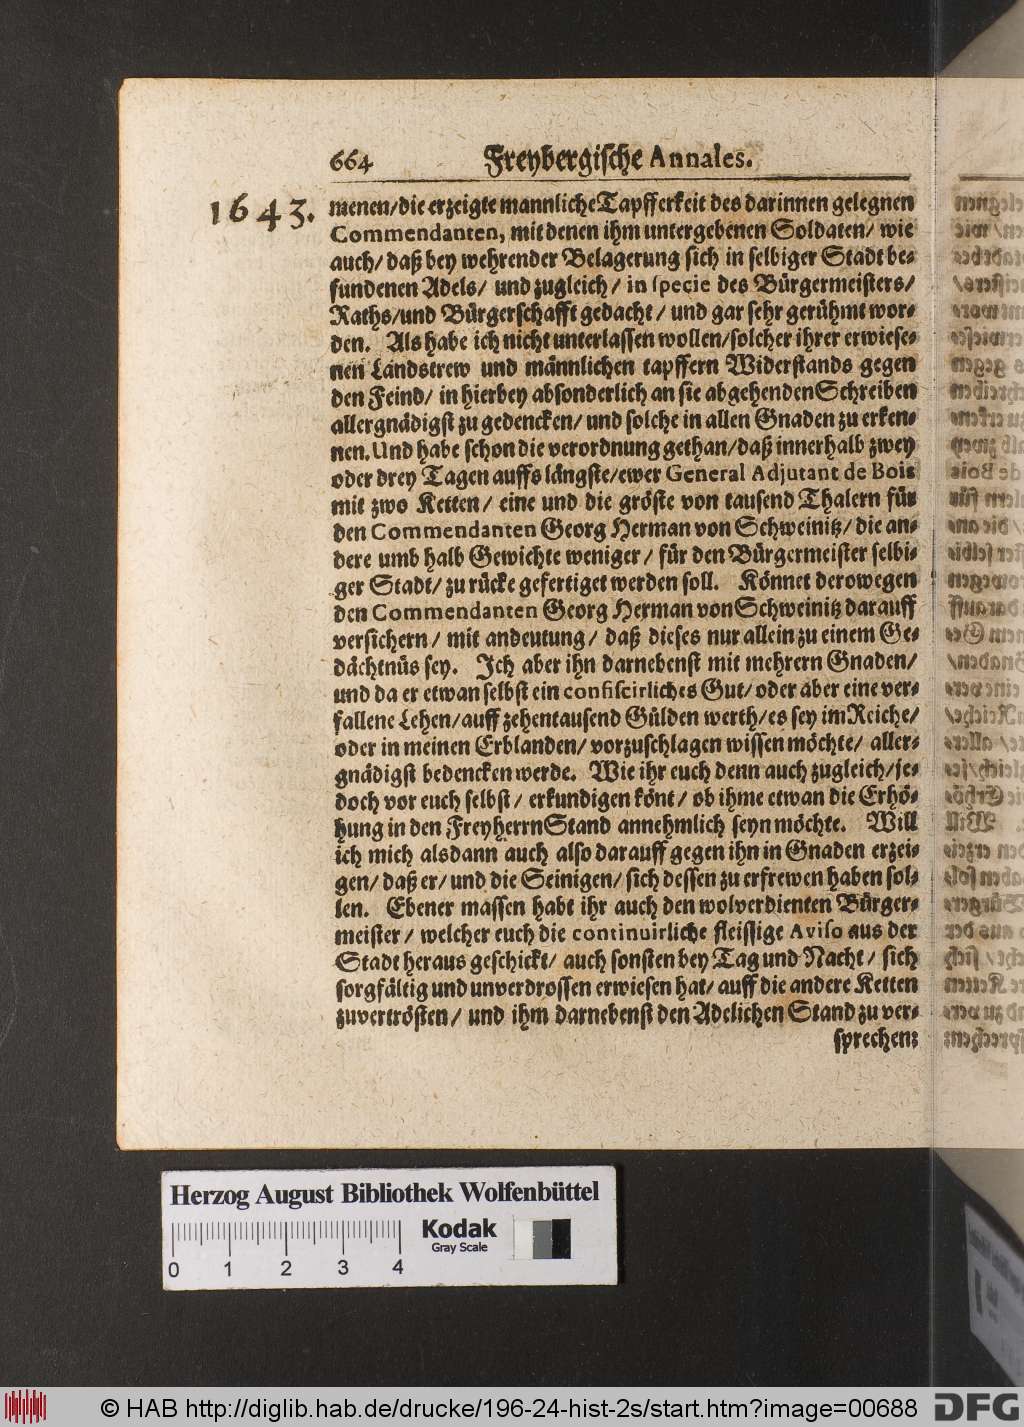 664 Freybergische Annales.
1643. menen/die erzeigte mannliche Tapfferkeit des darinnen gelegnen
Commendanten, mit denen ihm untergebenen Soldaten/ wie
auch/ daß bey wehrender Belagerung sich in selbiger Stadt be-
fundenen Adels/ und zugleich/ in specie des Bürgermeisters/
Raths/und Bürgerschafft gedacht/ und gar sehr gerühmt wor-
den. Als habe ich nicht unterlassen wollen/solcher ihrer erwiese-
nen Landstrew und männlichen tapffern Widerstands gegen
den Feind/ in hierbey absonderlich an sie abgehenden Schreiben
allergnädigst zu gedencken/ und solche in allen Gnaden zu erken-
nen. Und habe schon die verordnung gethan/daß innerhalb zwey
oder drey Tagen auffs längste/ewer General Adjutant de Bois
mit zwo Ketten/ eine und die gröste von tausend Thalern für
den Commendanten Georg Herman von Schweinitz/ die an-
dere umb halb Gewichte weniger/ für den Bürgermeister selbi-
ger Stadt/ zu rücke gefertiget werden soll. Könnet derowegen
den Commendanten Georg Herman von Schweinitz darauff
versichern/ mit andeutung/ daß dieses nur allein zu einem Ge-
dächtnüs sey. Ich aber ihn darnebenst mit mehrern Gnaden/
und da er etwan selbst ein confiscirliches Gut/ oder aber eine ver-
fallene Lehen/auff zehentausend Gülden werth/es sey im Reiche/
oder in meinen Erblanden/ vorzuschlagen wissen möchte/ aller-
gnädigst bedencken werde. Wie ihr euch denn auch zugleich/je-
doch vor euch selbst/ erkundigen könt/ ob ihme etwan die Erhö-
hung in den FreyherrnStand annehmlich seyn möchte. Will
ich mich alsdann auch also darauff gegen ihn in Gnaden erzei-
gen/ daß er/ und die Seinigen/ sich dessen zu erfrewen haben sol-
len. Ebener massen habt ihr auch den wolverdienten Bürger-
meister/ welcher euch die continuirliche fleissige Aviso aus der
Stadt heraus geschickt/ auch sonsten bey Tag und Nacht/ sich
sorgfältig und unverdrossen erwiesen hat/ auff die andere Ketten
zuvertrösten/ und ihm darnebenst den Adelichen Stand zu ver-
sprechen:
Herzog August Bibliothek Wolfenbüttel
Kodak
Gray Scale
0 1 2 3 4
© HAB http://diglib.hab.de/drucke/196-24-hist-2s/start.htm?image=00688 DFG